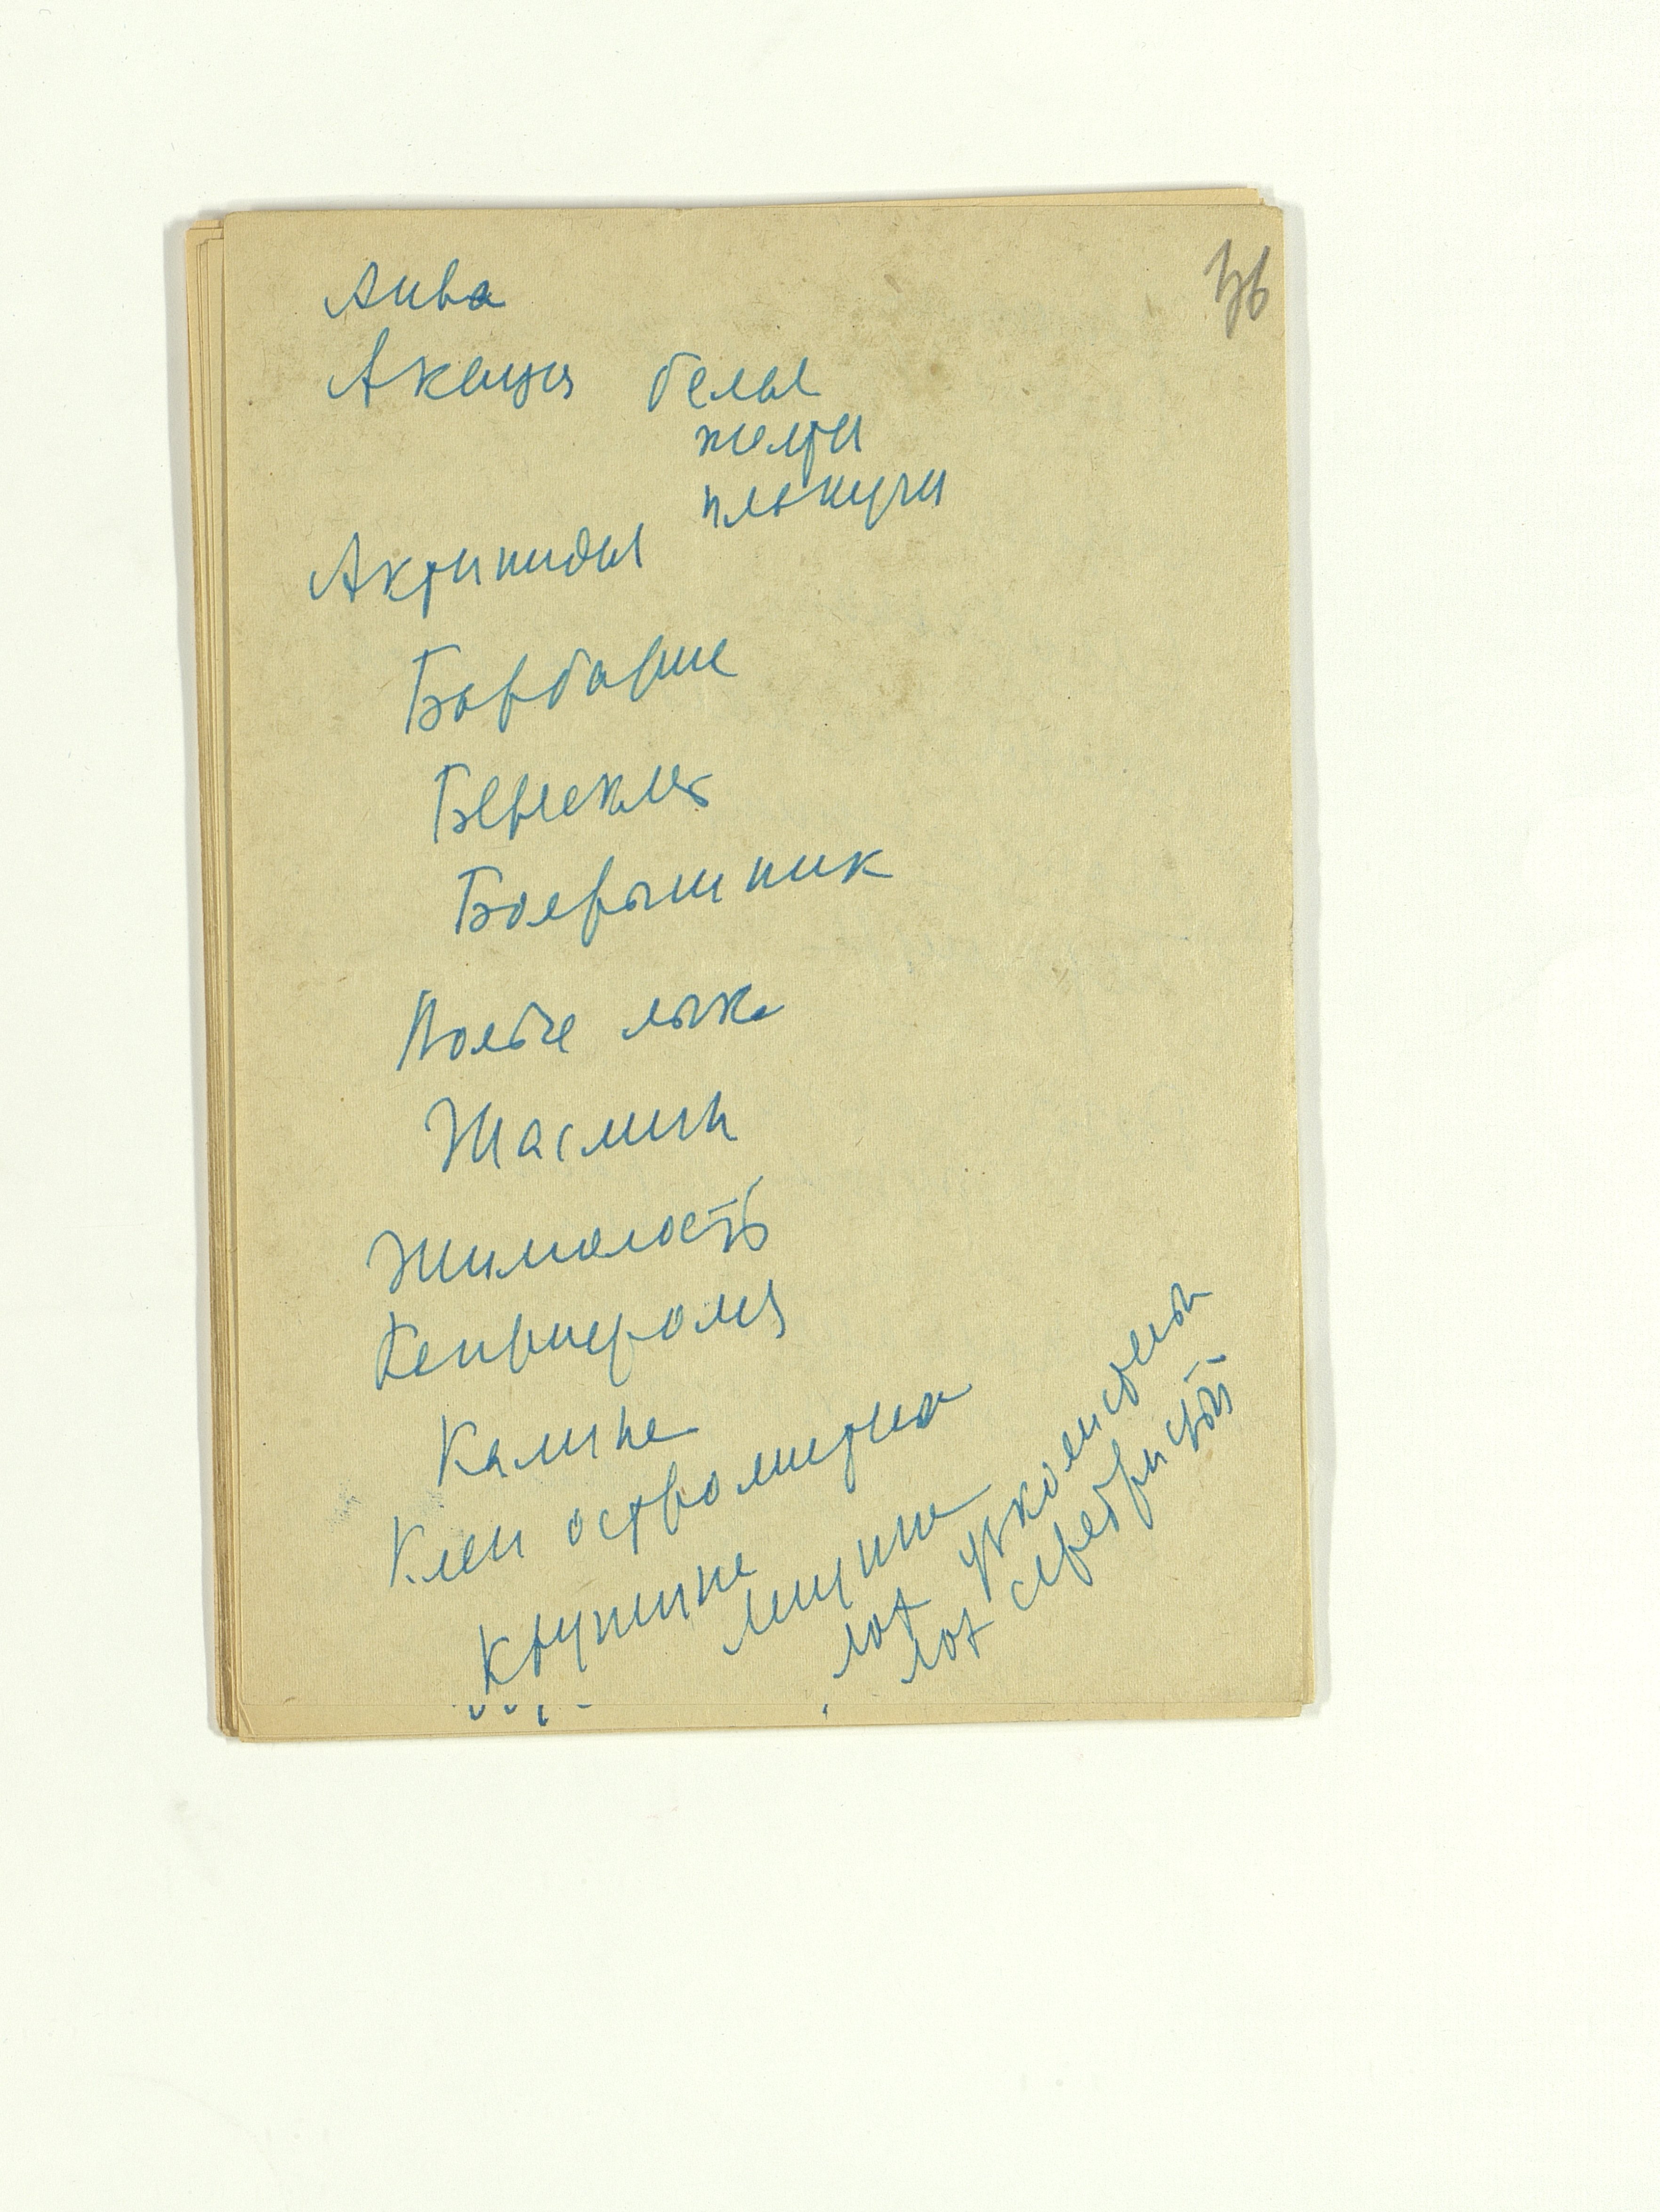 36
Аива
Акация белая
желтая
плакучая
Актинидия
Барбарис
Бересклет
Боярышник
Волчье лыко
Жасмин
Жимолость
Калина
Клен остролистна
Крушина
Лещина
Лох узколистный
Лох серебристый